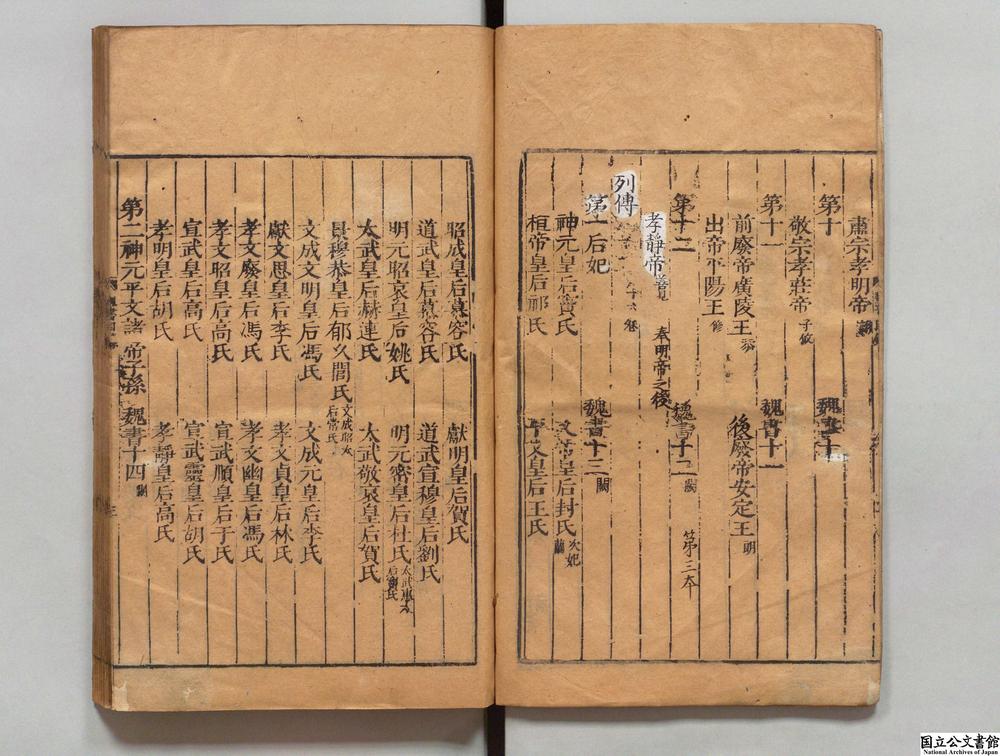 肅宗孝明帝
第十 魏書十
敬宗孝莊帝 子攸
第十一 魏書十一
前廢帝廣陵王 恭 後廢帝安定王 朗
出帝平陽王 修
第十二 魏書十二 闕 第三本
孝靜帝 善見 奉明帝之後
列傳
第一后妃 魏書十三 闕
神元皇后竇氏 文帝皇后封氏 次妃蘭
桓帝皇后祁氏 平文皇后王氏
昭成皇后慕容氏 獻明皇后賀氏
道武皇后慕容氏 道武宣穆皇后劉氏
明元昭哀皇后姚氏 明元密皇后杜氏
太武皇后赫連氏 太武敬哀皇后賀氏
景穆恭皇后郁久閭氏 文成昭太后常氏
文成文明皇后馮氏 文成元皇后李氏
獻文思皇后李氏 孝文貞皇后林氏
孝文廢皇后馮氏 孝文幽皇后馮氏
孝文昭皇后高氏 宣武順皇后于氏
宣武皇后高氏 宣武靈皇后胡氏
孝明皇后胡氏 孝靜皇后高氏
第二神元平文諸帝子孫 魏書十四
国立公文書館
National Archives of Japan